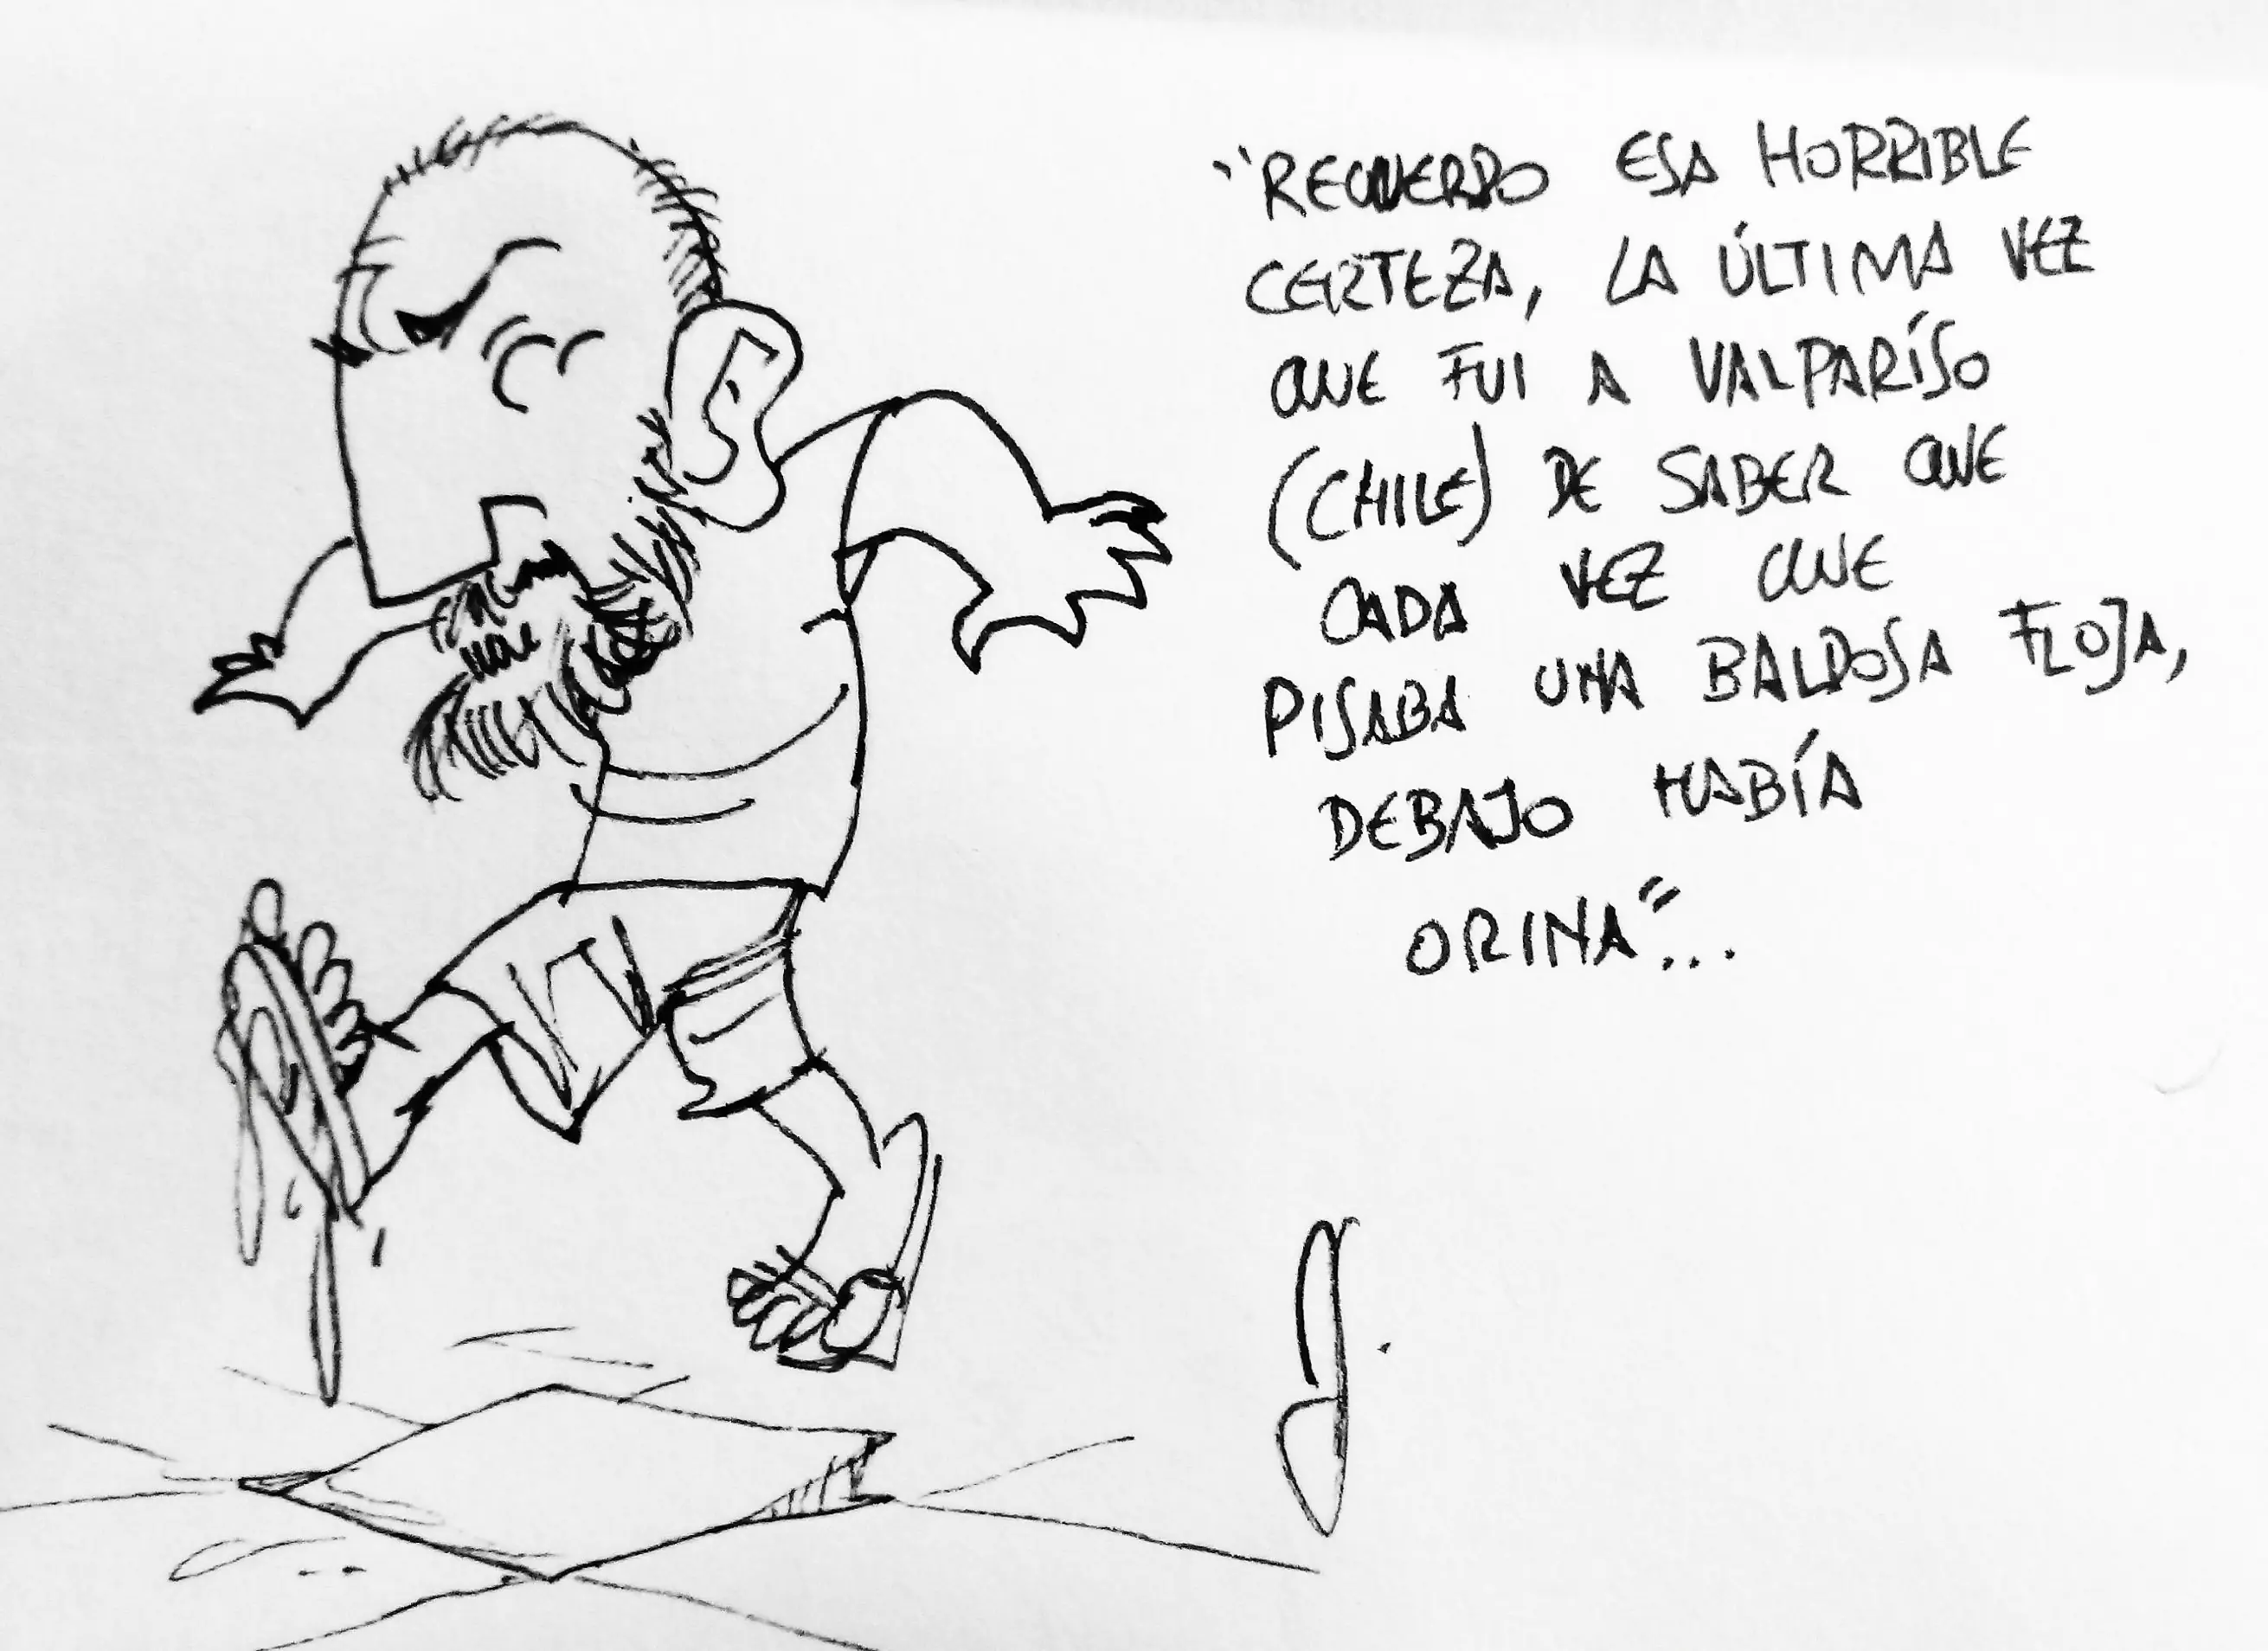 "RECUERDO ESA HORRIBLE
CERTEZA, LA ÚLTIMA VEZ
QUE FUI A VALPARÍSO
(CHILE) DE SABER QUE
CADA VEZ QUE
PISABA UNA BALDOSA FLOJA,
DEBAJO HABÍA
ORINA"...